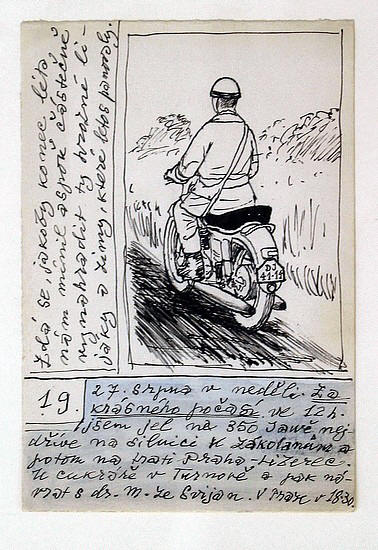 Zdá se, jakoby konec léta
nám mínil aspoň částečně
vynahradit ty hrozné li-
jáky a zimy, které letos panovaly.
DJ
41-14
19.
27 srpna v neděli. Za
krásného počasí ve 12 h.
jsem jel na 350 Jawě nej-
dříve na silnici k Zákolanům a
potom na trati Praha-Liberec.
K cukráře v Turnově a pak ná-
vrat s dr. M. ze Svijan. V Praze v 18.30